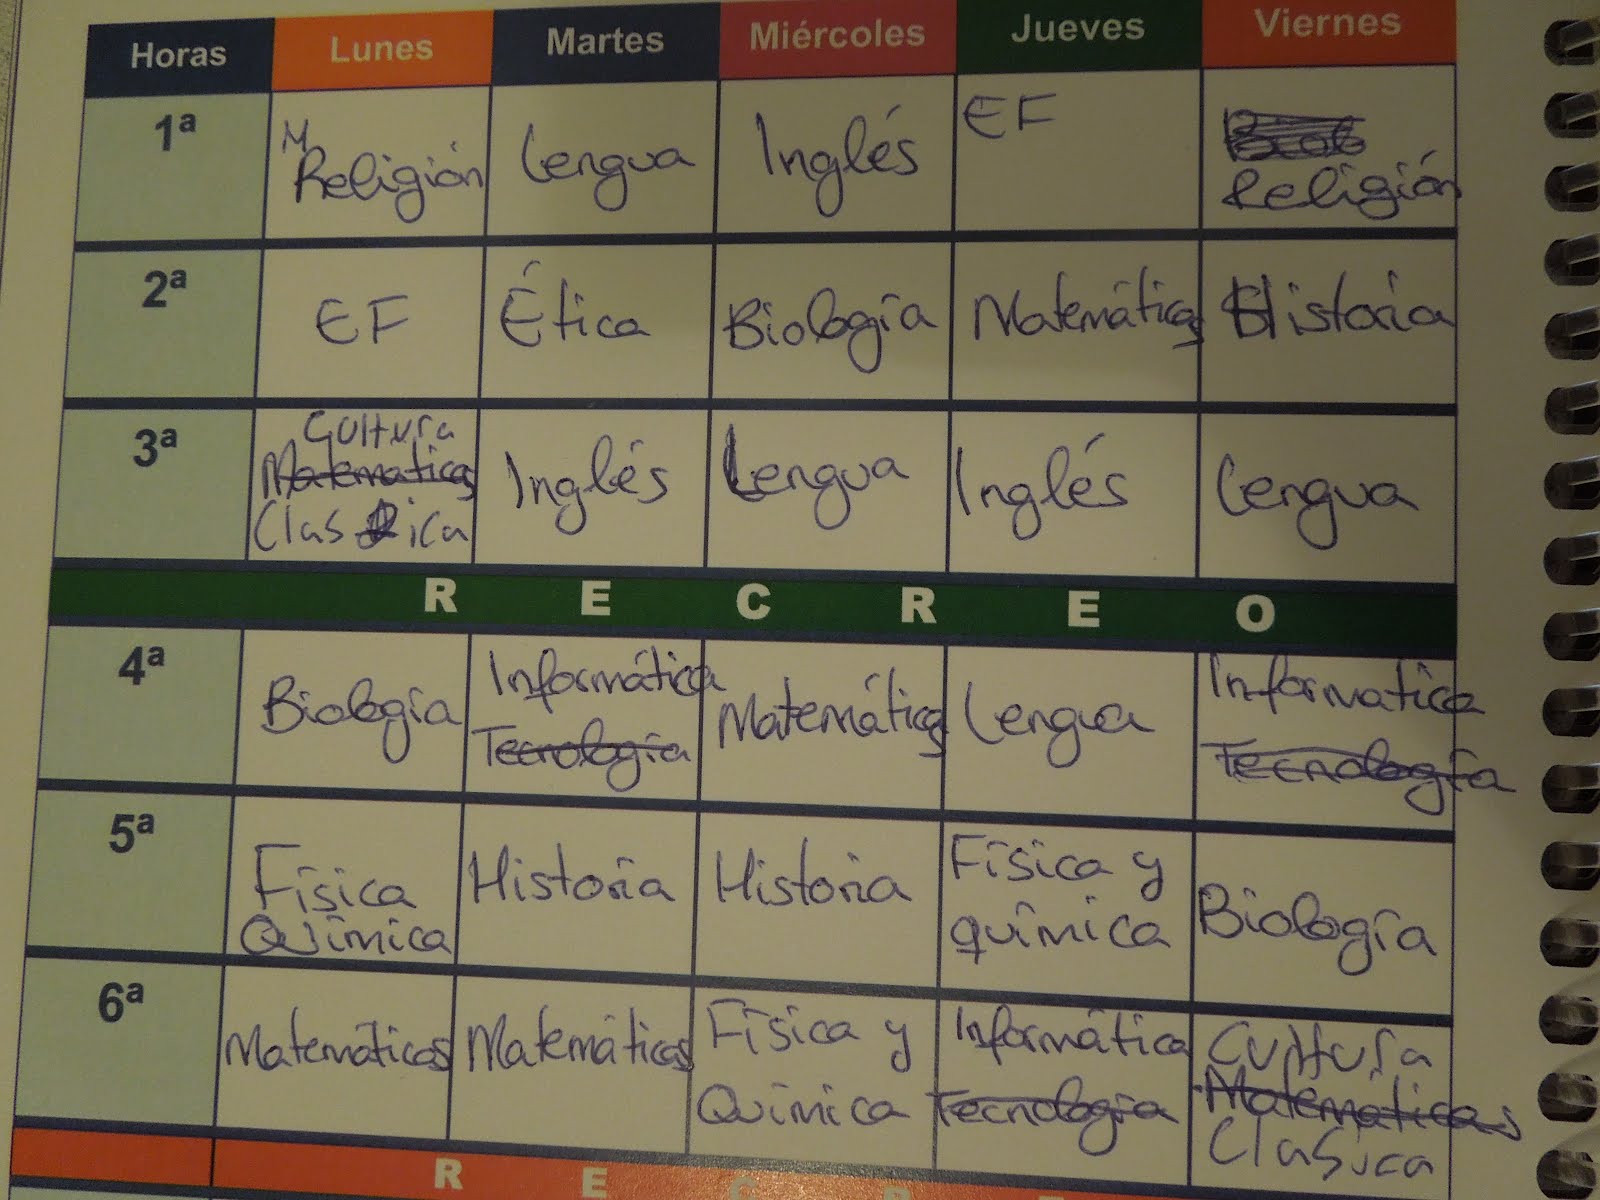 Horas Lunes Martes Miércoles Jueves Viernes
1ª Religión Lengua Inglés EF Religión
2ª EF Ética Biología Matemáticas Historia
3ª Cultura Matematicas Clasica Inglés Lengua Inglés Lengua
R E C R E O
4ª Biología Informática Tecnología Matemáticas Lengua Informatica Tecnología
5ª Física Química Historia Historia Física y química Biología
6ª Matemáticas Matemáticas Física y Química Informática Tecnología Cultura Matemáticas Clasica
R E C R E